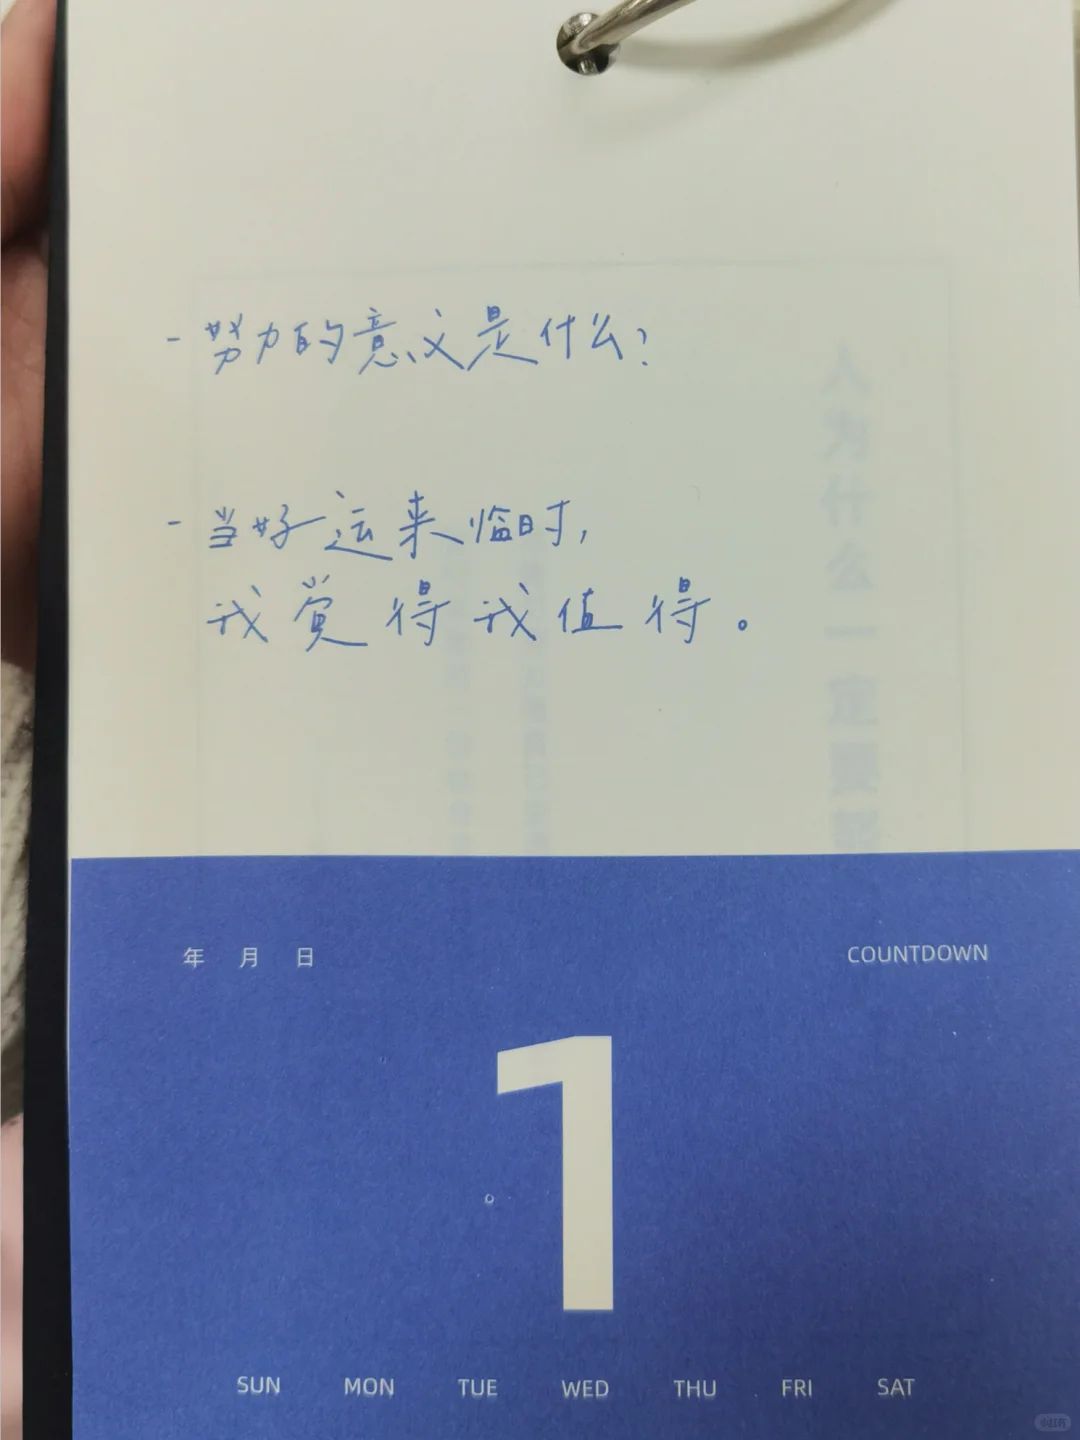 - 努力的意义是什么?
- 当好运来临时,
我觉得我值得。
人为什么一定要
年 月 日
COUNTDOWN
1
SUN MON TUE WED THU FRI SAT
小红书